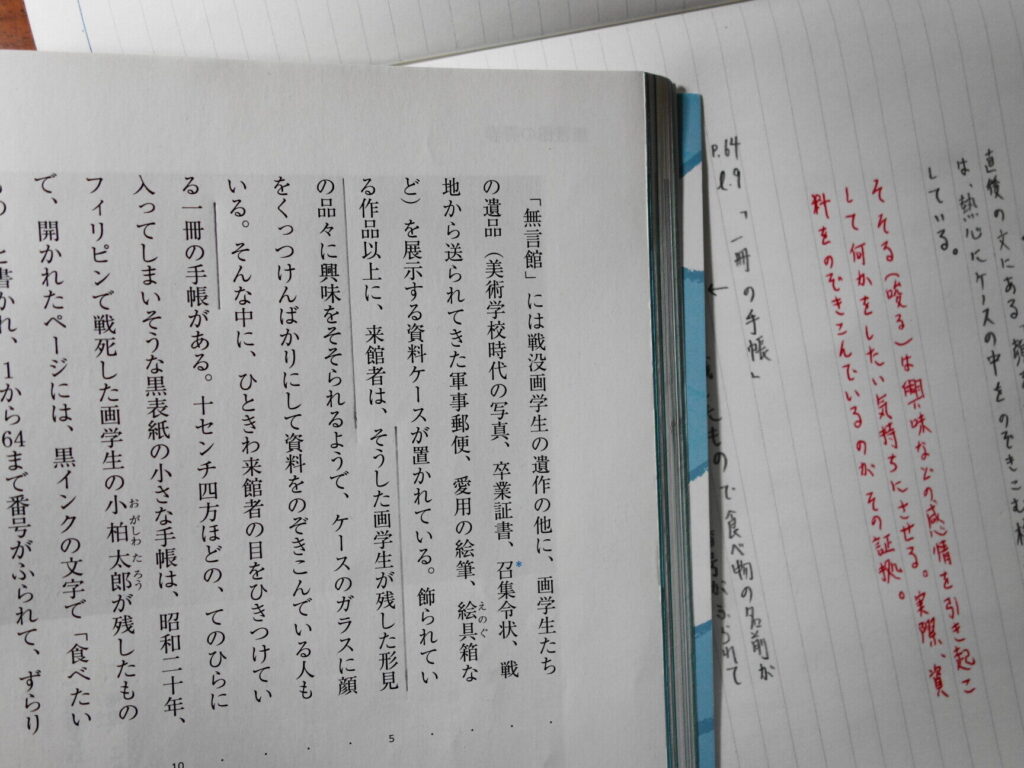 「無言館」には戦没画学生の遺作の他に、画学生たち
の遺品（美術学校時代の写真、卒業証書、召集令状、戦
地から送られてきた軍事郵便、愛用の絵筆、絵具箱な
えのぐ
ど）を展示する資料ケースが置かれている。飾られてい
る作品以上に、来館者は、そうした画学生が残した形見
5
の品々に興味をそそられるようで、ケースのガラスに顔
をくっつけんばかりにして資料をのぞきこんでいる人も
いる。そんな中に、ひときわ来館者の目をひきつけてい
る一冊の手帳がある。十センチ四方ほどの、てのひらに
入ってしまいそうな黒表紙の小さな手帳は、昭和二十年、
10
フィリピンで戦死した画学生の小柏太郎が残したもの
おがしわたろう
で、開かれたページには、黒インクの文字で「食べたい
と書かれ、1から64まで番号がふられて、ずらり
直後の文にある、顔を
は、熱心にケースの中をのぞきこむ様
している。
そそる(唆る)は興味などの感情を引き起こ
して何かをしたい気持ちにさせる。実際、資
料をのぞきこんでいるのがその証拠。
P.64
l.9
「一冊の手帳」
←
もので食べ物の名前が
ふられて